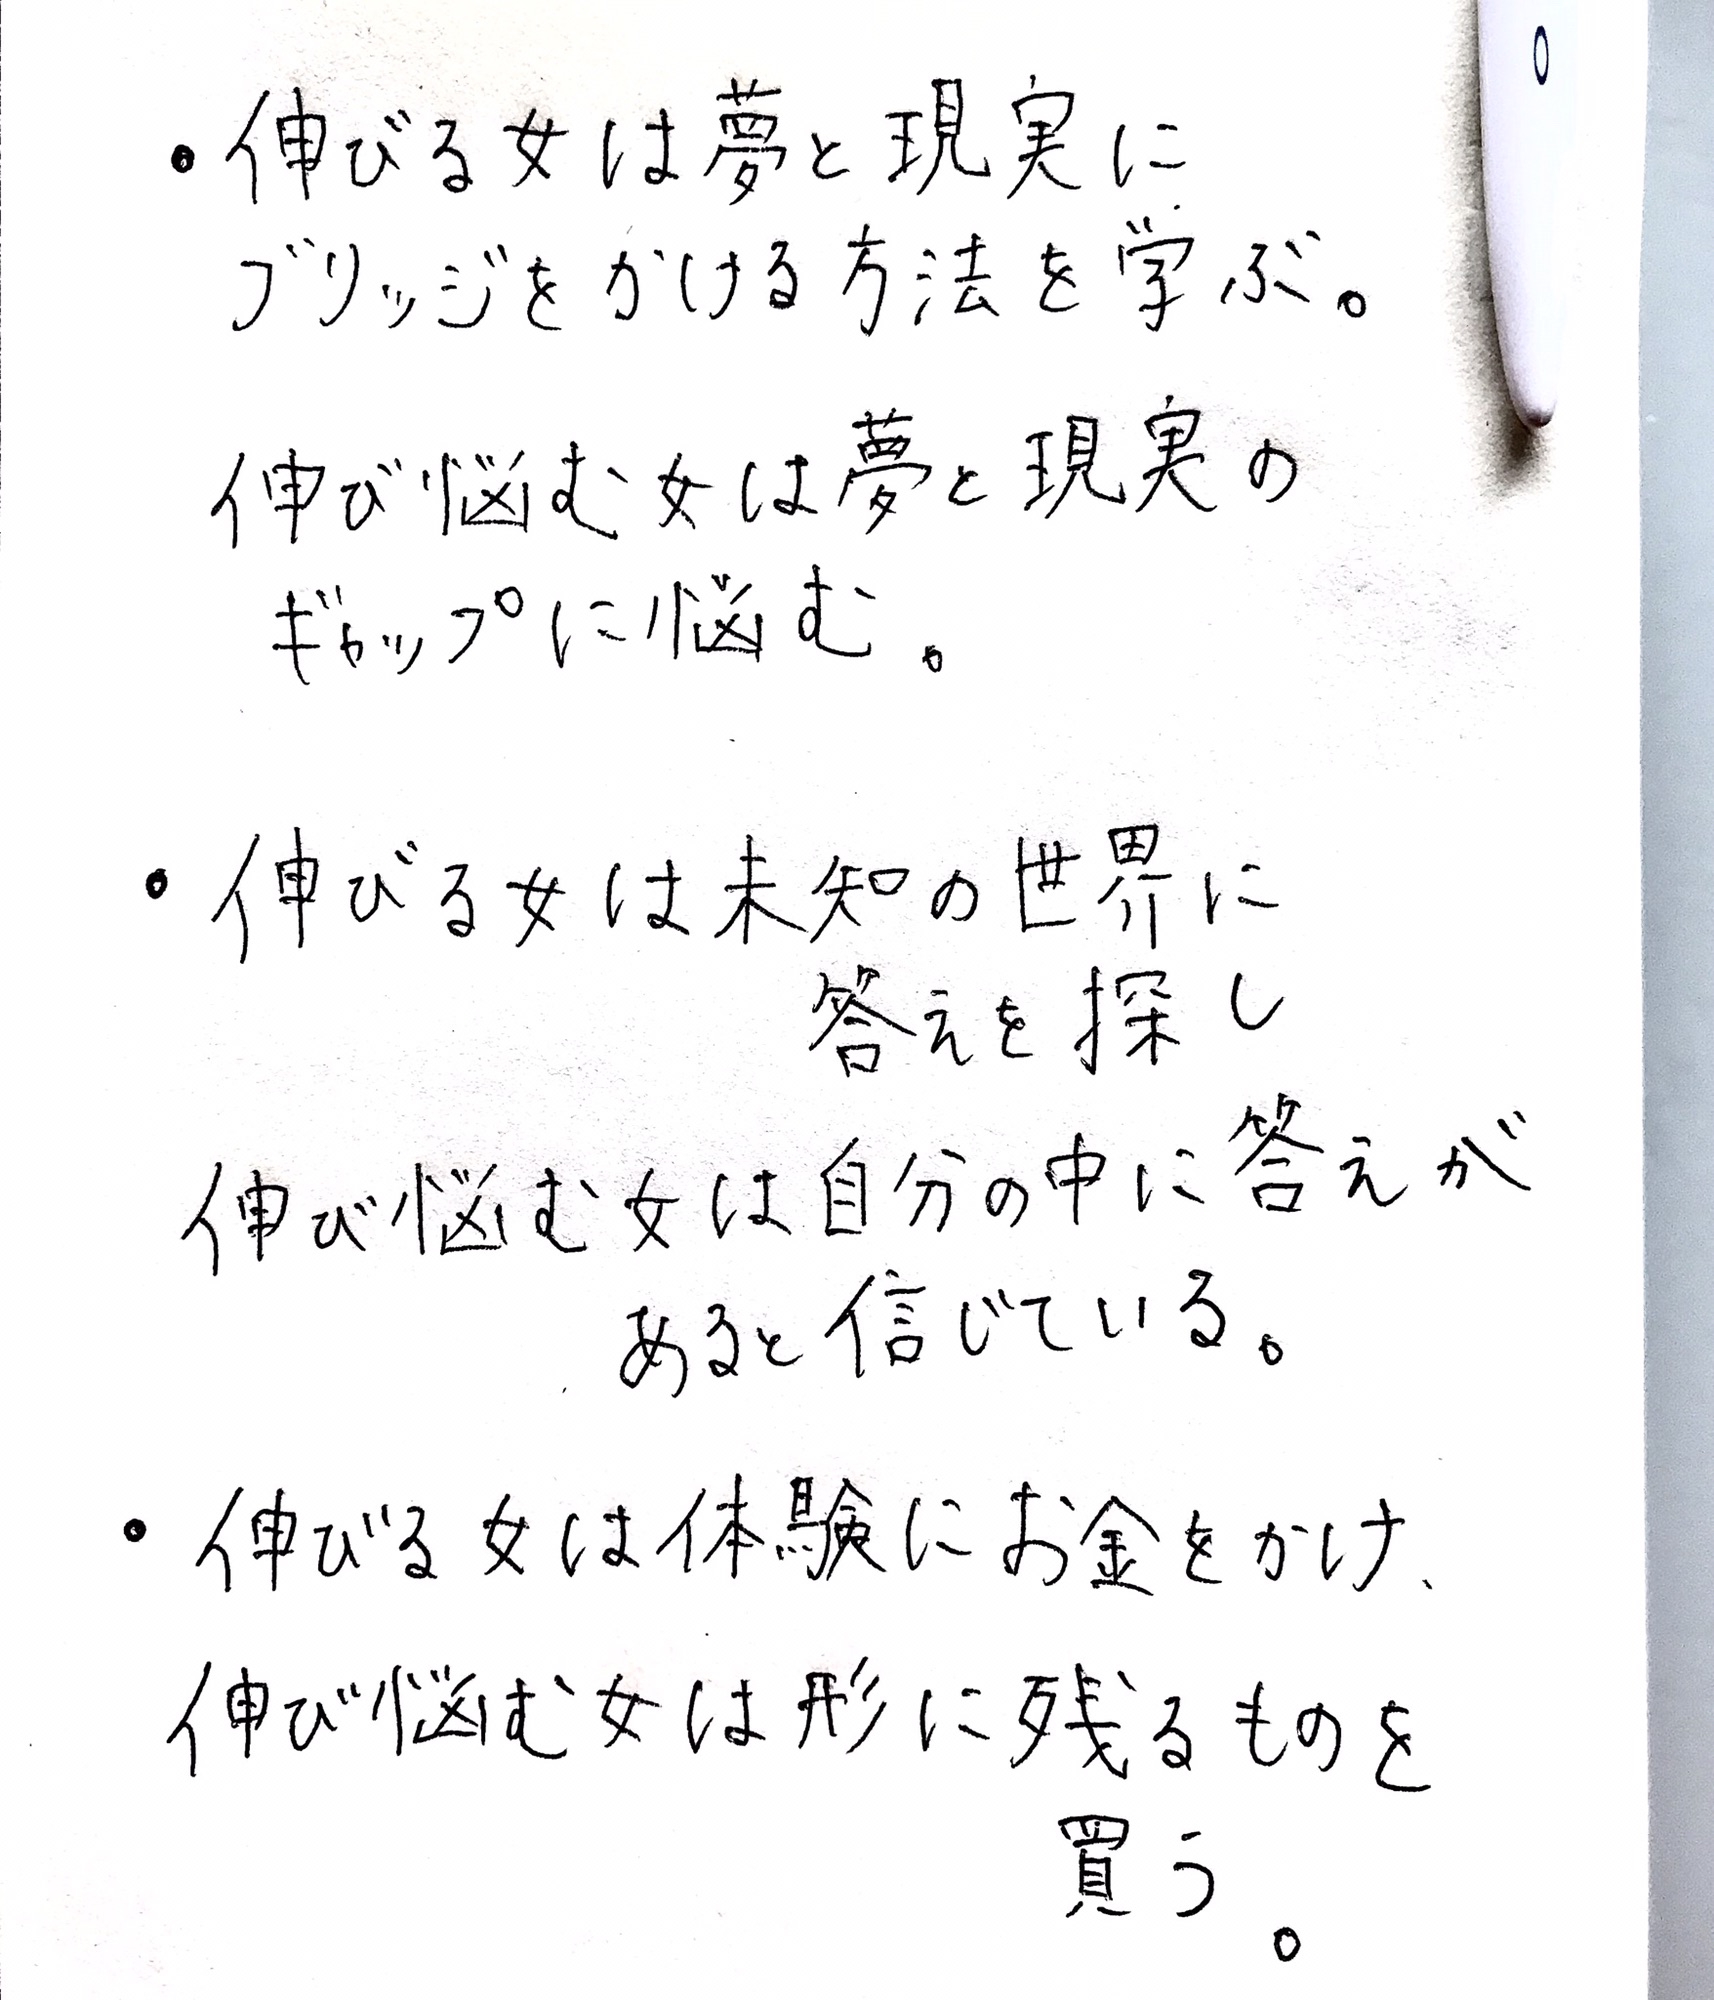 ・伸びる女は夢と現実に
ブリッジをかける方法を学ぶ。
伸び悩む女は夢と現実の
ギャップに悩む。
・伸びる女は未知の世界に
答えを探し
伸び悩む女は自分の中に答えが
あると信じている。
・伸びる女は体験にお金をかけ、
伸び悩む女は形に残るものを
買う。